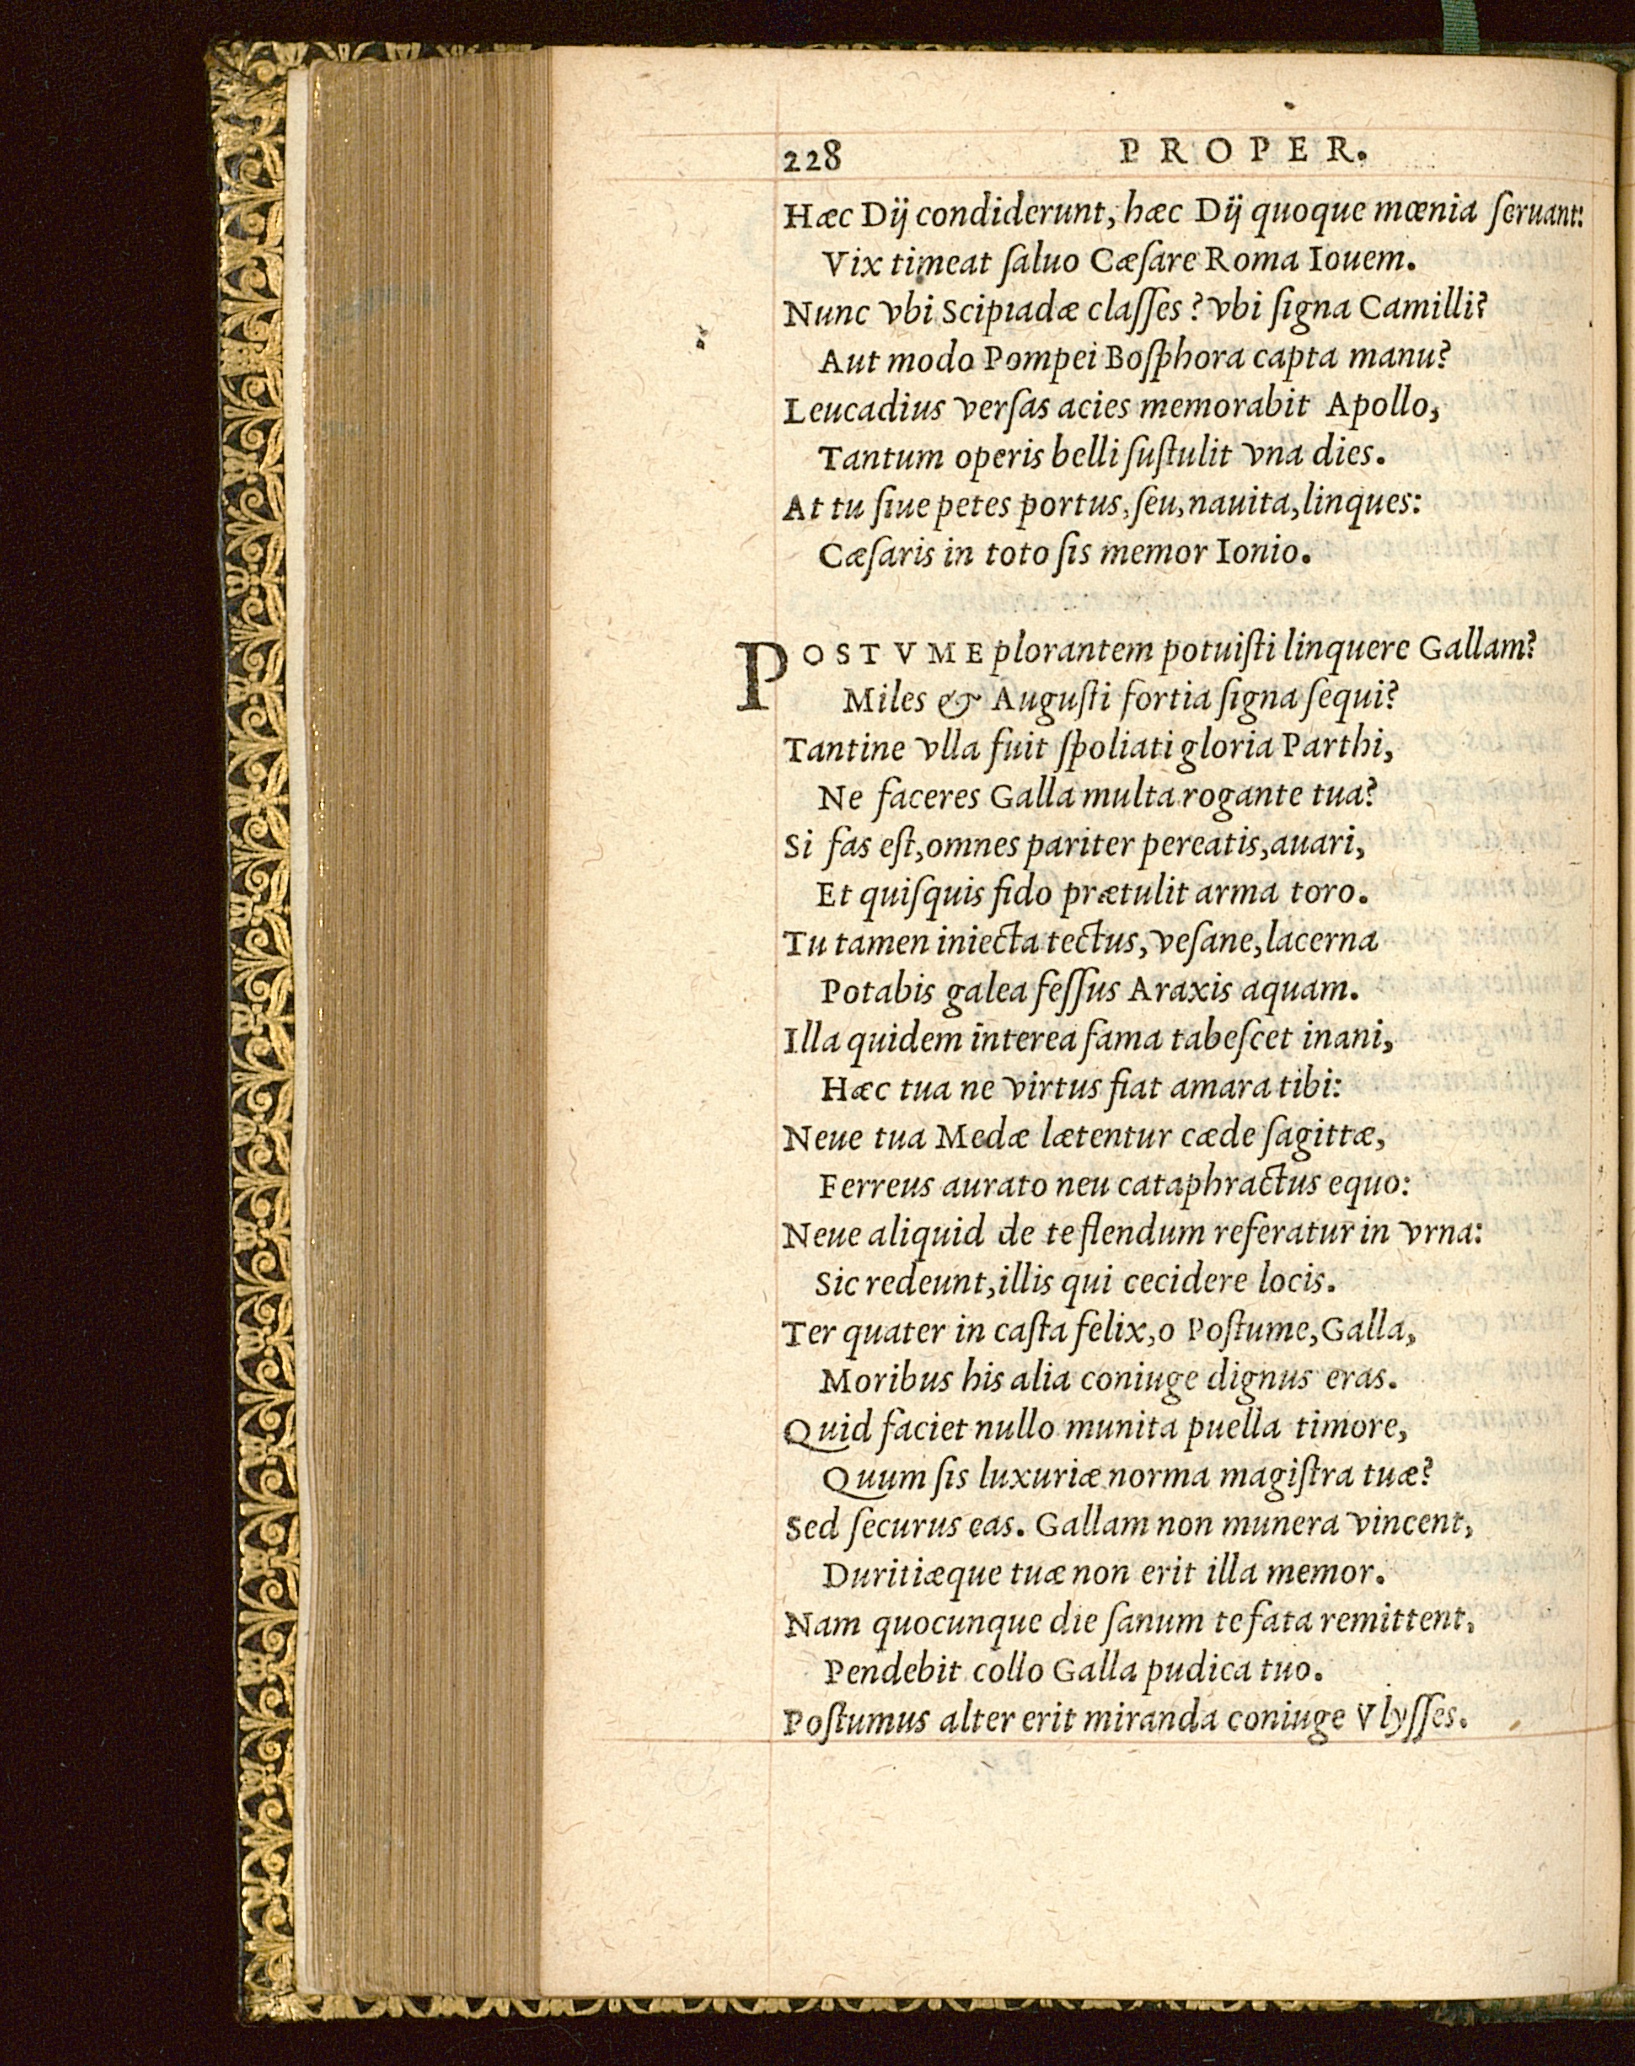 228 PROPER.
Hæc Dij condiderunt, hæc Dij quoque mœnia ſeruant:
Vix timeat ſaluo Cæſare Roma Iouem.
Nunc vbi Scipiadæ claſſes? vbi ſigna Camilli?
Aut modo Pompei Boſphora capta manu?
Leucadius verſas acies memorabit Apollo,
Tantum operis belli ſuſtulit vna dies.
At tu ſiue petes portus, ſeu, nauita, linques:
Cæſaris in toto ſis memor Ionio.
POSTVME plorantem potuiſti linquere Gallam?
Miles & Auguſti fortia ſigna ſequi?
Tantine vlla fuit ſpoliati gloria Parthi,
Ne faceres Galla multa rogante tua?
Si fas eſt, omnes pariter pereatis, auari,
Et quiſquis fido prætulit arma toro.
Tu tamen iniecta tectus, veſane, lacerna
Potabis galea feſſus Araxis aquam.
Illa quidem interea fama tabeſcet inani,
Hæc tua ne virtus fiat amara tibi:
Neue tua Medæ lætentur cæde ſagittæ,
Ferreus aurato neu cataphractus equo:
Neue aliquid de te flendum referatur in vrna:
Sic redeunt, illis qui cecidere locis.
Ter quater in caſta felix, o Poſtume, Galla,
Moribus his alia coniuge dignus eras.
Quid faciet nullo munita puella timore,
Quum ſis luxuriæ norma magiſtra tuæ?
Sed ſecurus eas. Gallam non munera vincent,
Duritiæque tuæ non erit illa memor.
Nam quocunque die ſanum te fata remittent,
Pendebit collo Galla pudica tuo.
Poſtumus alter erit miranda coniuge Vlyſſes.